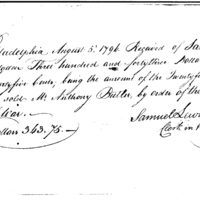 ladelphia August 5. 1796 Received of Sa
Three hundred and fortythree
ntyfive Cents, being the amount of the Twentyfi
sold Mr. Anthony Butler, by order of the
War.
363.75
Samuel Lew
Clerk in